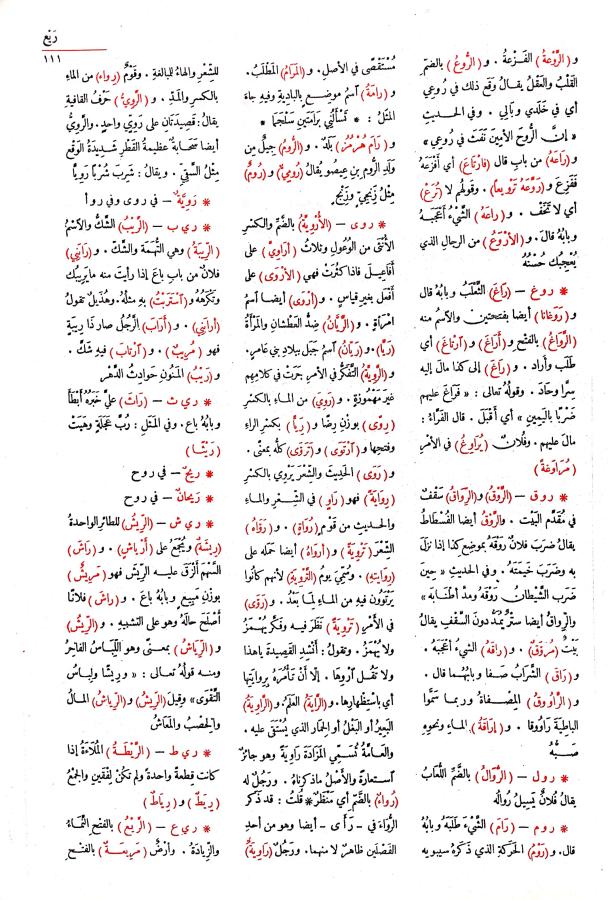 رَيْع
١١١
و (الرَّوْعَةُ) الفَزْعةُ . و (الرُّوعُ) بالضمّ
القَلْبُ والعَقْلُ يقالُ وقع ذلك في رُوعِي
أي في خَلَدي وبَالِي . وفي الحديثِ
«إنّ الرُّوحَ الأَمينَ نَفَثَ في رُوعِي»
و (رَاعَهُ) من باب قال (فارْتَاعَ) أي أفْزَعَهُ
فَفَزِعَ و (رَوَّعَهُ تَرْوِيعًا). وقولُهم لا (تُرَعْ)
أي لا تَخَفْ . و (راعَهُ) الشّيءُ أعْجَبَهُ
وبابُهُ قالَ. و (الأَرْوَعُ) من الرجالِ الذي
يُعْجِبُكَ حُسْنُهُ
* روغ – (رَاغَ) الثَّعْلَبُ وبابُهُ قالَ
و (رَوَغَانًا) أيضا بفتحتين والآسمُ منه
(الرَّوَاغُ) بالفتح و (أرَاغَ) و (آرْتَاغَ) أي
طَلَب وأراد . و (رَاغَ) إلى كذا مالَ إليه
سِرًّا وحَادَ . وقولُهُ تعالى : «فَرَاغَ عليهم
ضَرْبًا باليَمِينِ» أي أقْبَلَ. قالَ الفَرَّاءُ:
مالَ عليهم. وفُلَانٌ (يُرَاوِغُ) في الأَمْرِ
(مُرَاوَغَةً)
* روق – (الرَّوْقُ) و (الرِّوَاقُ) سَقْفٌ
في مُقَدَّمِ البَيْت. و (الرَّوْقُ) أيضا الفُسْطَاطُ
يقالُ ضَرَبَ فلانٌ رَوْقَهُ بموضعِ كذا إذا نزَلَ
به وضَرَبَ خَيْمَتَهُ . وفي الحديثِ «حِينَ
ضَرَبَ الشَّيْطانُ رَوْقَهُ ومَدَّ أطْنَابَهُ»
والرِّواقُ أيضا سِتْرٌ يُمَدُّ دونَ السَّقْفِ يقالُ
بَيْتٌ (مُرَوَّقٌ). و (راقَهُ) الشيءُ أعْجَبَهُ .
و (رَاقَ) الشَّرابُ صَفا وبابُهُما قالَ .
و (الرَّاوُوقُ) المِصْفَاةُ وربما سَمَّوا
الباطِيَةَ رَاوُوقًا . و (إراقَةُ) الماءِ ونحوِهِ
صَبُّهُ
* رول – (الرُّوَالُ) بالضَّمِّ اللُّعَابُ
يقالُ فُلَانٌ يَسِيلُ رُوَالُهُ
* روم – (رَامَ) الشّيءَ طَلَبَهُ وبابُهُ
قال. و (رَوْمُ) الحَرَكةِ الذي ذَكَرَهُ سيبويه
مُسْتَقْصًى في الأصلِ. و (المَرَامُ) المَطْلَبُ.
و (رامَةُ) آسمُ موضعٍ بالباديةِ وفيه جاءَ
المثلُ: * تَسْأَلُنِي بِرَامَتَيْنِ سَلْجَمَا *
و (رَامَ هُرْمُزُ) بَلَدٌ. و (الرُّومُ) جِيلٌ من
وَلَدِ الرُّومِ بنِ عِيصُو يقالُ (رُومِيٌّ) و (رُومٌ)
مِثْلُ زِنْجِيٍّ وزِنْجٍ
* روى – (الأُرْوِيَّةُ) بالضَّمِّ والكسرِ
الأُنْثَى من الوُعُولِ وثلاثُ (أرَاوِيَّ) على
أفاعِيلَ فاذا كَثُرَتْ فهي (الأَرْوَى) على
أفْعَلَ بغيرِ قياسٍ. و (أرْوَى) أيضا آسمُ
آمْرَأةٍ. و (الرَّيَّانُ) ضِدُّ العَطْشانِ والمَرْأةُ
(رَيَّا). و (رَيَّانُ) اسمُ جَبَلٍ ببلادِ بني عامر.
و (الرَّوِيَّةُ) التَّفَكُّرُ في الأمرِ جَرَتْ في كلامِهم
غيرَ مَهْمُوزةٍ . و (رَوِيَ) من الماءِ بالكسرِ
(رِوًى) بوزنِ رِضًا و (رِيًّا) بكسرِ الراءِ
وفتحها و (آرْتَوَى) و (تَرَوَّى) كلُّه بمعنًى .
و (رَوَى) الحديثَ والشِّعرَ يَرْوِي بالكسرِ
(رِوَايَةً) فهو (رَاوٍ) في الشِّعرِ والماءِ
والحديثِ من قومٍ (رُوَاةٍ) . و (رَوَّاهُ)
الشِّعْرَ (تَرْوِيَةً) و (أرْوَاهُ) أيضا حَمَلَه على
(رِوايتِهِ) وسُمِّيَ يومُ (التَّرْوِيَةِ) لأنّهم كانوا
يَرْتَوُونَ فيه من الماءِ لما بَعْدُ . و (رَوَّى)
في الأَمْرِ (تَرْوِيَةً) نَظَرَ فيه وفكَّرَ يُهْمَزُ
ولا يُهْمَزُ. وتقولُ: أنْشِدِ القَصِيدةَ ياهذا
ولا تَقُلْ آرْوِها. إلّا أنْ تَأمُرَهُ بِرِوايَتِها
أي باسْتِظْهارِها. و (الرَّايَةُ) العَلَمُ. و (الرَّاوِيَةُ)
البَعيرُ أو البَغْلُ أو الحِمَارُ الذي يُسْتَقَى عليه .
والعامّةُ تُسَمِّي المَزَادَةَ رَاوِيَةً وهو جائزٌ
آستعارةً والأصْلُ ماذكرناهُ. ورَجُلٌ له
(رُوَاءٌ) بالضَّمِّ أي مَنْظَرٌ * قُلْتُ : قد ذكر
الرُّوَاءَ في – رَأَى – أيضا وهو من أحدِ
الفَصْلَينِ ظاهرٌ لا منهما. ورَجُلٌ (رَاوِيَةٌ)
للشِّعْرِ والهاءُ للمُبالغةِ . وقَوْمٌ (رِواءٌ) من الماءِ
بالكسرِ والمَدِّ. و (الرَّوِيُّ) حَرْفُ القافيةِ
يقالُ: قصيدتانِ على رَوِيٍّ واحدٍ. والرَّوِيُّ
أيضا سَحَابةٌ عظيمةُ القَطْرِ شديدَةُ الوَقْعِ
مِثْلُ السَّقِيِّ . ويقالُ : شَرِبَ شُرْبًا رَوِيًّا
* رَوِيَّةٌ – في روى وفي روأ
* ريب – (الرَّيْبُ) الشَّكُّ والآسْمُ
(الرِّيبَةُ) وهي التُّهمَةُ والشَّكُّ . و (رَابَنِي)
فلانٌ من بابِ باعَ إذا رأيتَ منه ما يَرِيبُكَ
وتَكْرَهُهُ و (آسْتَرَبْتُ) بهِ مثلُهُ. وهُذَيلٌ تقولُ
(أرابَنِي). و (أَرَابَ) الرَّجُلُ صارَ ذا رِيبَةٍ
فهو (مُرِيبٌ) . و (آرْتَابَ) فيه شَكَّ .
و (رَيْبُ) المَنُونِ حَوادِثُ الدَّهْرِ
* ريث – (رَاثَ) عليَّ خَبَرُهُ أبْطَأَ
وبابُهُ باعَ . وفي المَثَلِ : رُبَّ عَجَلَةٍ وهَبَتْ
(رَيْثًا)
* ريحٌ – في روح
* رَيحانٌ – في روح
* ريش – (الرِّيشُ) للطائرِ الواحدةُ
(رِيشَةٌ) ويُجْمَعُ على (أرْياشٍ) . و (راشَ)
السَّهْمَ ألْزَقَ عليه الرِّيشَ فهو (مَرِيشٌ)
بوزنِ مَبِيعٍ وبابُهُ باعَ . و (راشَ) فلانًا
أصْلَحَ حالَهُ وهو على التشبيه . و (الرِّيشُ)
و (الرِّيَاشُ) بمعنًى وهو اللِّبَاسُ الفاخِرُ
ومنه قولُهُ تعالى : «ورِيشًا ولِباسُ
التَّقْوَى» وقِيلَ (الرِّيشُ) و (الرِّيَاشُ) المالُ
والخِصْبُ والمَعَاشُ
* ريط – (الرَّيْطَةُ) المُلَاءَةُ إذا
كانت قِطعةً واحدةً ولم تكُنْ لِفْقَينِ والجَمْعُ
(رَيْطٌ) و (رِيَاطٌ)
* ريع – (الرَّيْعُ) بالفتح النَّمَاءُ
والزِّيادَةُ . وأرضٌ (مَرِيعَةٌ) بالفتحِ